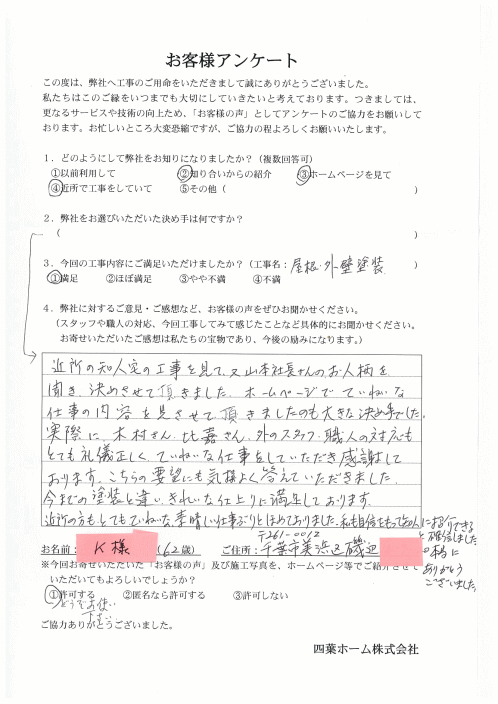 お客様アンケート
この度は、弊社へ工事のご用命をいただきまして誠にありがとうございました。
私たちはこのご縁をいつまでも大切にしていきたいと考えております。つきましては、
更なるサービスや技術の向上ため、「お客様の声」としてアンケートのご協力をお願いして
おります。お忙しいところ大変恐縮ですが、ご協力の程よろしくお願いいたします。
1．どのようにして弊社をお知りになりましたか？（複数回答可）
①以前利用して ②知り合いからの紹介 ③ホームページを見て
④近所で工事をしていて ⑤その他（ ）
2．弊社をお選びいただいた決め手は何ですか？
（ ）
3．今回の工事内容にご満足いただけましたか？（工事名：屋根・外壁塗装 ）
①満足 ②ほぼ満足 ③やや不満 ④不満
4．弊社に対するご意見・ご感想など、お客様の声をぜひお聞かせください。
（スタッフや職人の対応、今回工事してみて感じたことなど具体的にお聞かせください。
お寄せいただいたご感想は私たちの宝物であり、今後の励みになります。）
近所の知人宅の工事を見て、又山本社長さんのお人柄を
聞き、決めさせて頂きました。ホームページでていねいな
仕事の内容を見させて頂きましたのも大きな決め手でした。
実際に、木村さん、比嘉さん、外のスタッフ、職人の対応も
とても礼儀正しく、ていねいな仕事をしていただき感謝して
おります。こちらの要望にも気持よく答えていただきました。
今までの塗装と違い、きれいな仕上りに満足しております。
近所の方もとてもていねいな素晴しい仕事ぶりとほめておりました。私も自信をもって知人にお紹介できる
と確信しました
本当に
ありがとう
ございました。
〒261-0012
お名前：K様（62歳） ご住所：千葉市美浜区磯辺
※今回お寄せいただいた「お客様の声」及び施工写真を、ホームページ等でご紹介させて
いただいてもよろしいでしょうか？
①許可する ②匿名なら許可する ③許可しない
どうぞお使い
下さい
ご協力ありがとうございました。
四葉ホーム株式会社